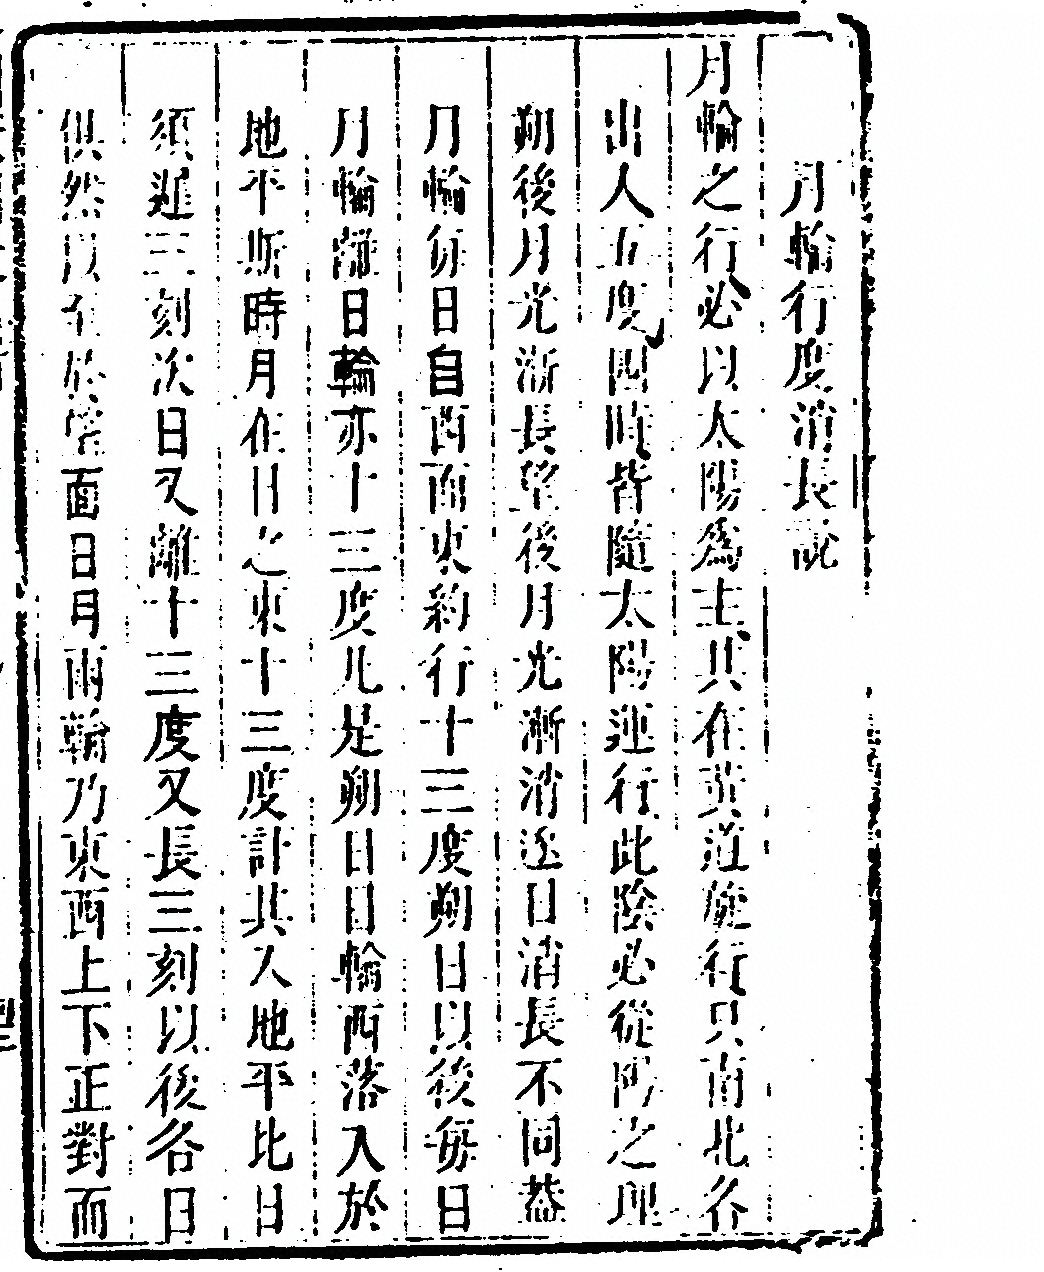 月輪行度消長說
月輪之行必以太陽為主其在黃道旋行只南北各
出入五度四時皆隨太陽運行此陰必從陽之理
朔後月光漸長望後月光漸消逐日消長不同蓋
月輪每日自西而東約行十三度朔日以後每日
月輪離日輪亦十三度凡是朔日日輪西落入於
地平斯時月在日之東十三度計其入地平比日
須遲三刻次日又離十三度又長三刻以後各日
俱然以至於望面日月兩輪乃東西上下正對而